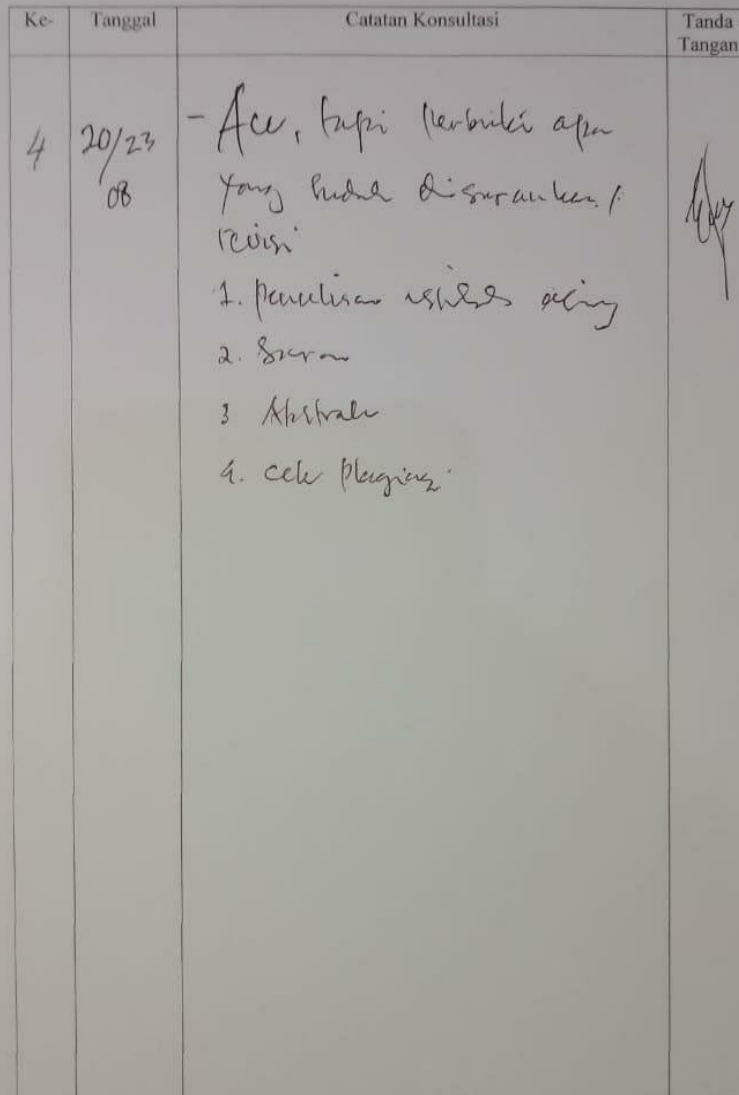 Ke- Tanggal Catatan Konsultasi Tanda Tangan
4 20/23 08 - Acc, tapi perbaiki apa
yang sudah disarankan /
revisi
1. penulisan asing
2. Saran
3 Abstrak
4. cek plagiasi